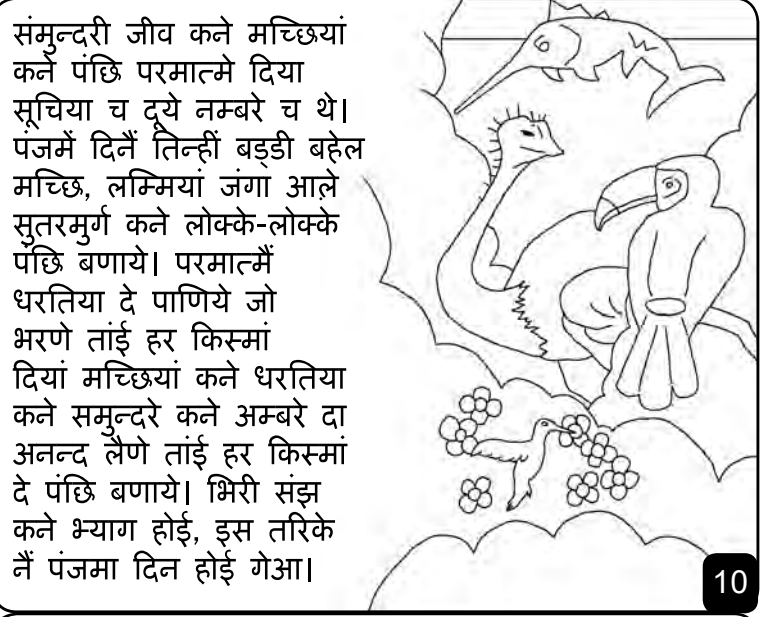 संमुन्दरी जीव कने मच्छियां
कने पंछि परमात्मे दिया
सूचिया च दूये नम्बरे च थे।
पंजमें दिनैं तिन्हीं बड्डी बहेल
मच्छि, लम्मियां जंगा आले़
सुतरमुर्ग कने लोक्के-लोक्के
पंछि बणाये। परमात्मैं
धरतिया दे पाणिये जो
भरणे तांई हर किस्मां
दियां मच्छियां कने धरतिया
कने समुन्दरे कने अम्बरे दा
अनन्द लैणे तांई हर किस्मां
दे पंछि बणाये। भिरी संझ
कने भ्याग होई, इस तरिके
नैं पंजमा दिन होई गेआ।
10